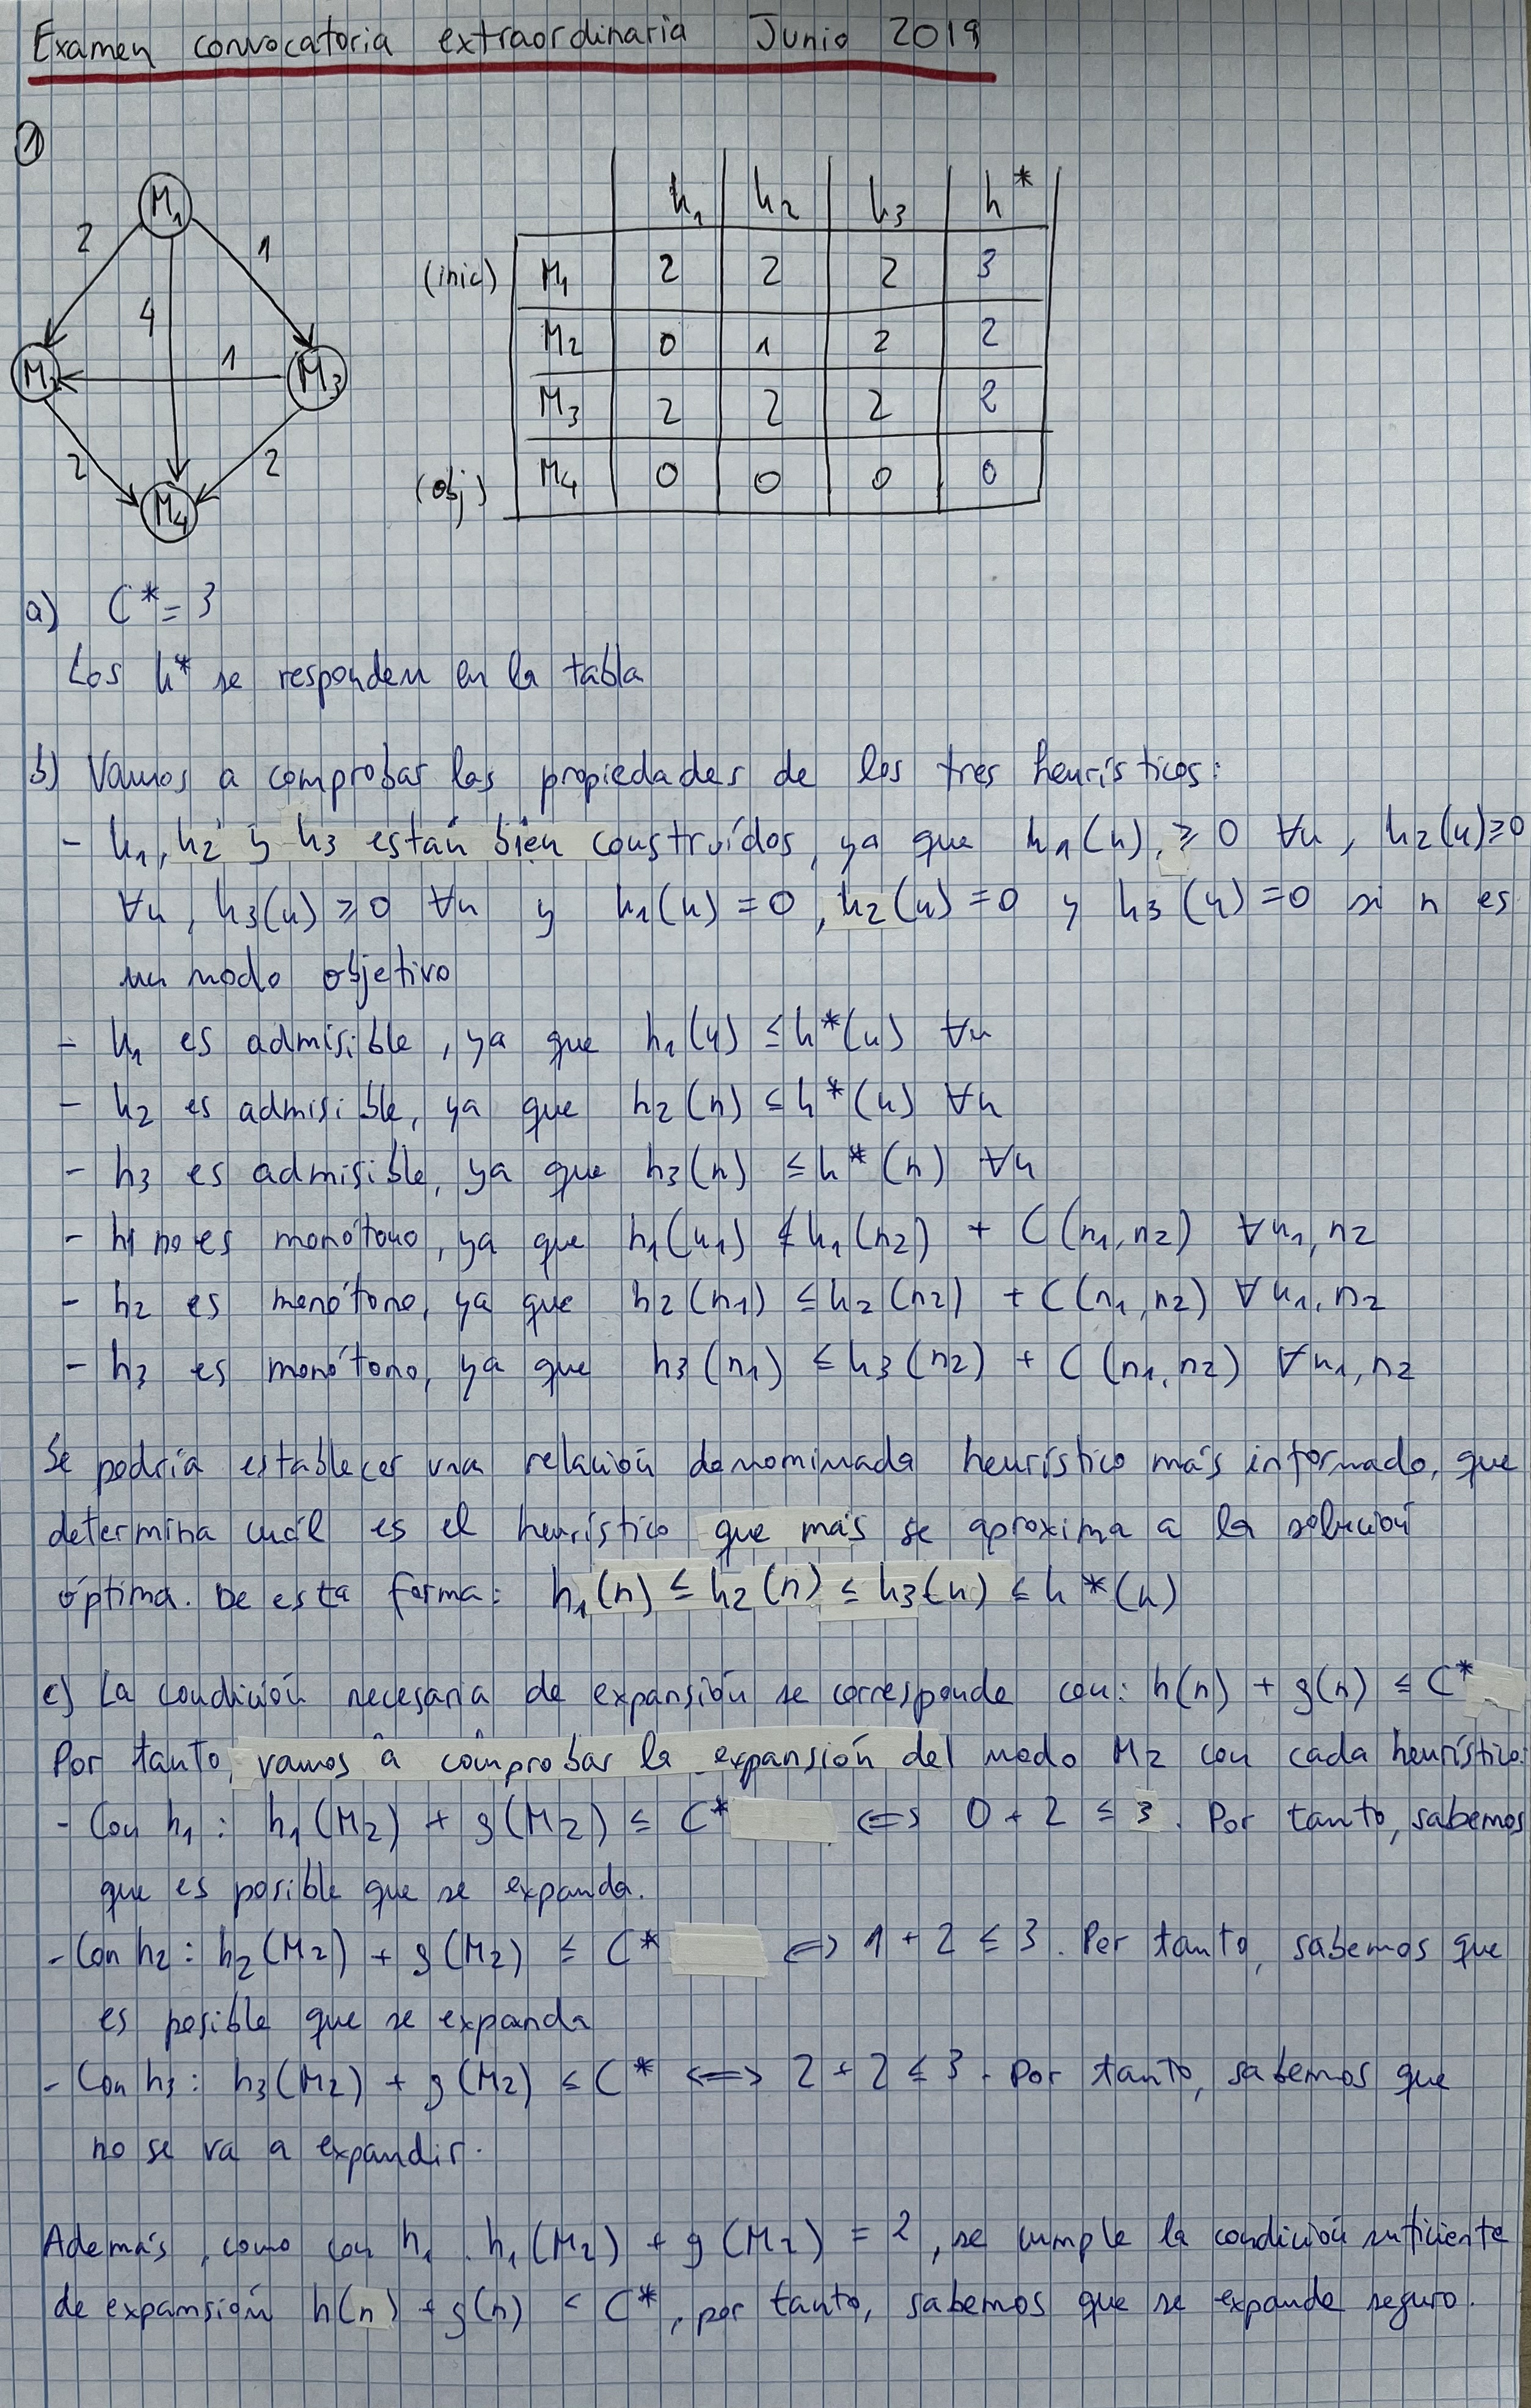 Examen convocatoria extraordinaria Junio 2019
①
M₁
2
1
4
M₂
1
M₃
2
2
M₄
h₁ h₂ h₃ h*
(inic) M₁ 2 2 2 3
M₂ 0 1 2 2
M₃ 2 2 2 2
(obj) M₄ 0 0 0 0
a) C* = 3
Los h* se responden en la tabla
b) Vamos a comprobar las propiedades de los tres heurísticos:
- h₁, h₂ y h₃ están bien construídos, ya que h₁(n) ≥ 0 ∀n, h₂(n) ≥ 0
∀n, h₃(n) ≥ 0 ∀n y h₁(n) = 0, h₂(n) = 0 y h₃(n) = 0 si n es
un nodo objetivo
- h₁ es admisible, ya que h₁(n) ≤ h*(n) ∀n
- h₂ es admisible, ya que h₂(n) ≤ h*(n) ∀n
- h₃ es admisible, ya que h₃(n) ≤ h*(n) ∀n
- h₁ no es monótono, ya que h₁(n₁) ≰ h₁(n₂) + C(n₁, n₂) ∀n₁, n₂
- h₂ es monótono, ya que h₂(n₁) ≤ h₂(n₂) + C(n₁, n₂) ∀n₁, n₂
- h₃ es monótono, ya que h₃(n₁) ≤ h₃(n₂) + C(n₁, n₂) ∀n₁, n₂
Se podría establecer una relación denominada heurístico más informado, que
determina cuál es el heurístico que más se aproxima a la solución
óptima. De esta forma: h₁(n) ≤ h₂(n) ≤ h₃(n) ≤ h*(n)
c) La condición necesaria de expansión se corresponde con: h(n) + g(n) ≤ C*
Por tanto, vamos a comprobar la expansión del nodo M₂ con cada heurístico:
- Con h₁: h₁(M₂) + g(M₂) ≤ C* ⟺ 0 + 2 ≤ 3. Por tanto, sabemos
que es posible que se expanda.
- Con h₂: h₂(M₂) + g(M₂) ≤ C* ⟺ 1 + 2 ≤ 3. Por tanto, sabemos que
es posible que se expanda
- Con h₃: h₃(M₂) + g(M₂) ≤ C* ⟺ 2 + 2 ≰ 3. Por tanto, sabemos que
no se va a expandir.
Además, como con h₁, h₁(M₂) + g(M₂) = 2, se cumple la condición suficiente
de expansión h(n) + g(n) < C*, por tanto, sabemos que se expande seguro.